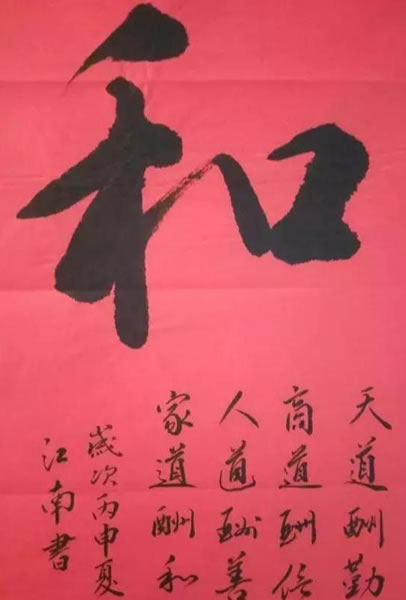 和
天道酬勤
商道酬信
人道酬善
家道酬和
岁次丙申夏
江南書